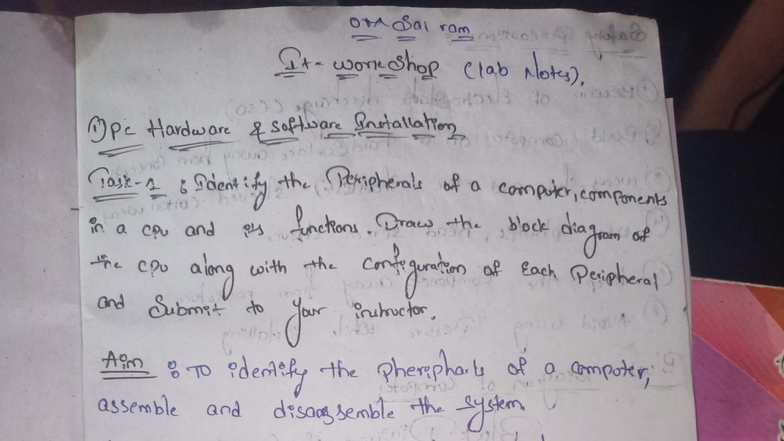 OM Sai ram
It-workshop (lab Notes),
1) Pc Hardware & software Installation
Task-1 : Identify the Peripherals of a computer, components
in a cpu and its functions. Draw the block diagram of
the cpu along with the configuration of Each Peripheral
and Submit to your instructor.
Aim : To identify the pheriphals of a computer,
assemble and disassemble the system.